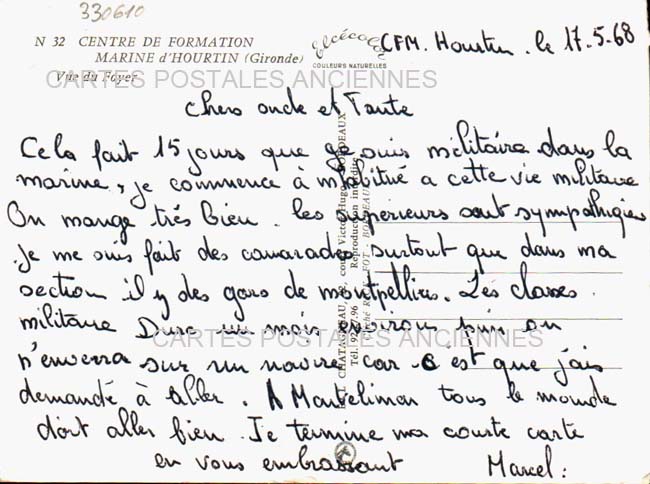 330610
N 32 CENTRE DE FORMATION
MARINE d'HOURTIN (Gironde)
Vue du Foyer
Elcécolor
COULEURS NATURELLES
CFM. Hourtin. le 17-5-68
CARTES POSTALES ANCIENNES
Chers oncle et Tante
Cela fait 15 jours que je suis militaire dans la
marine, je commence à m'abitué a cette vie militaire
On mange très bien. les supérieurs sont sympathiques
Je me suis fait des camarades surtout que dans ma
section il y des gars de montpelliers. Les classes
militaire Dure un mois environ puis on
CARTES POSTALES ANCIENNES
n'enverra sur un navire car c est que jais
demandé à aller. A Montelimar tous le monde
doit aller bien. Je termine ma courte carte
en vous embrassant Marcel:
CHATAGNEAU, cours Victor Hugo, BORDEAUX
Tél. 92 Reproduction interdite